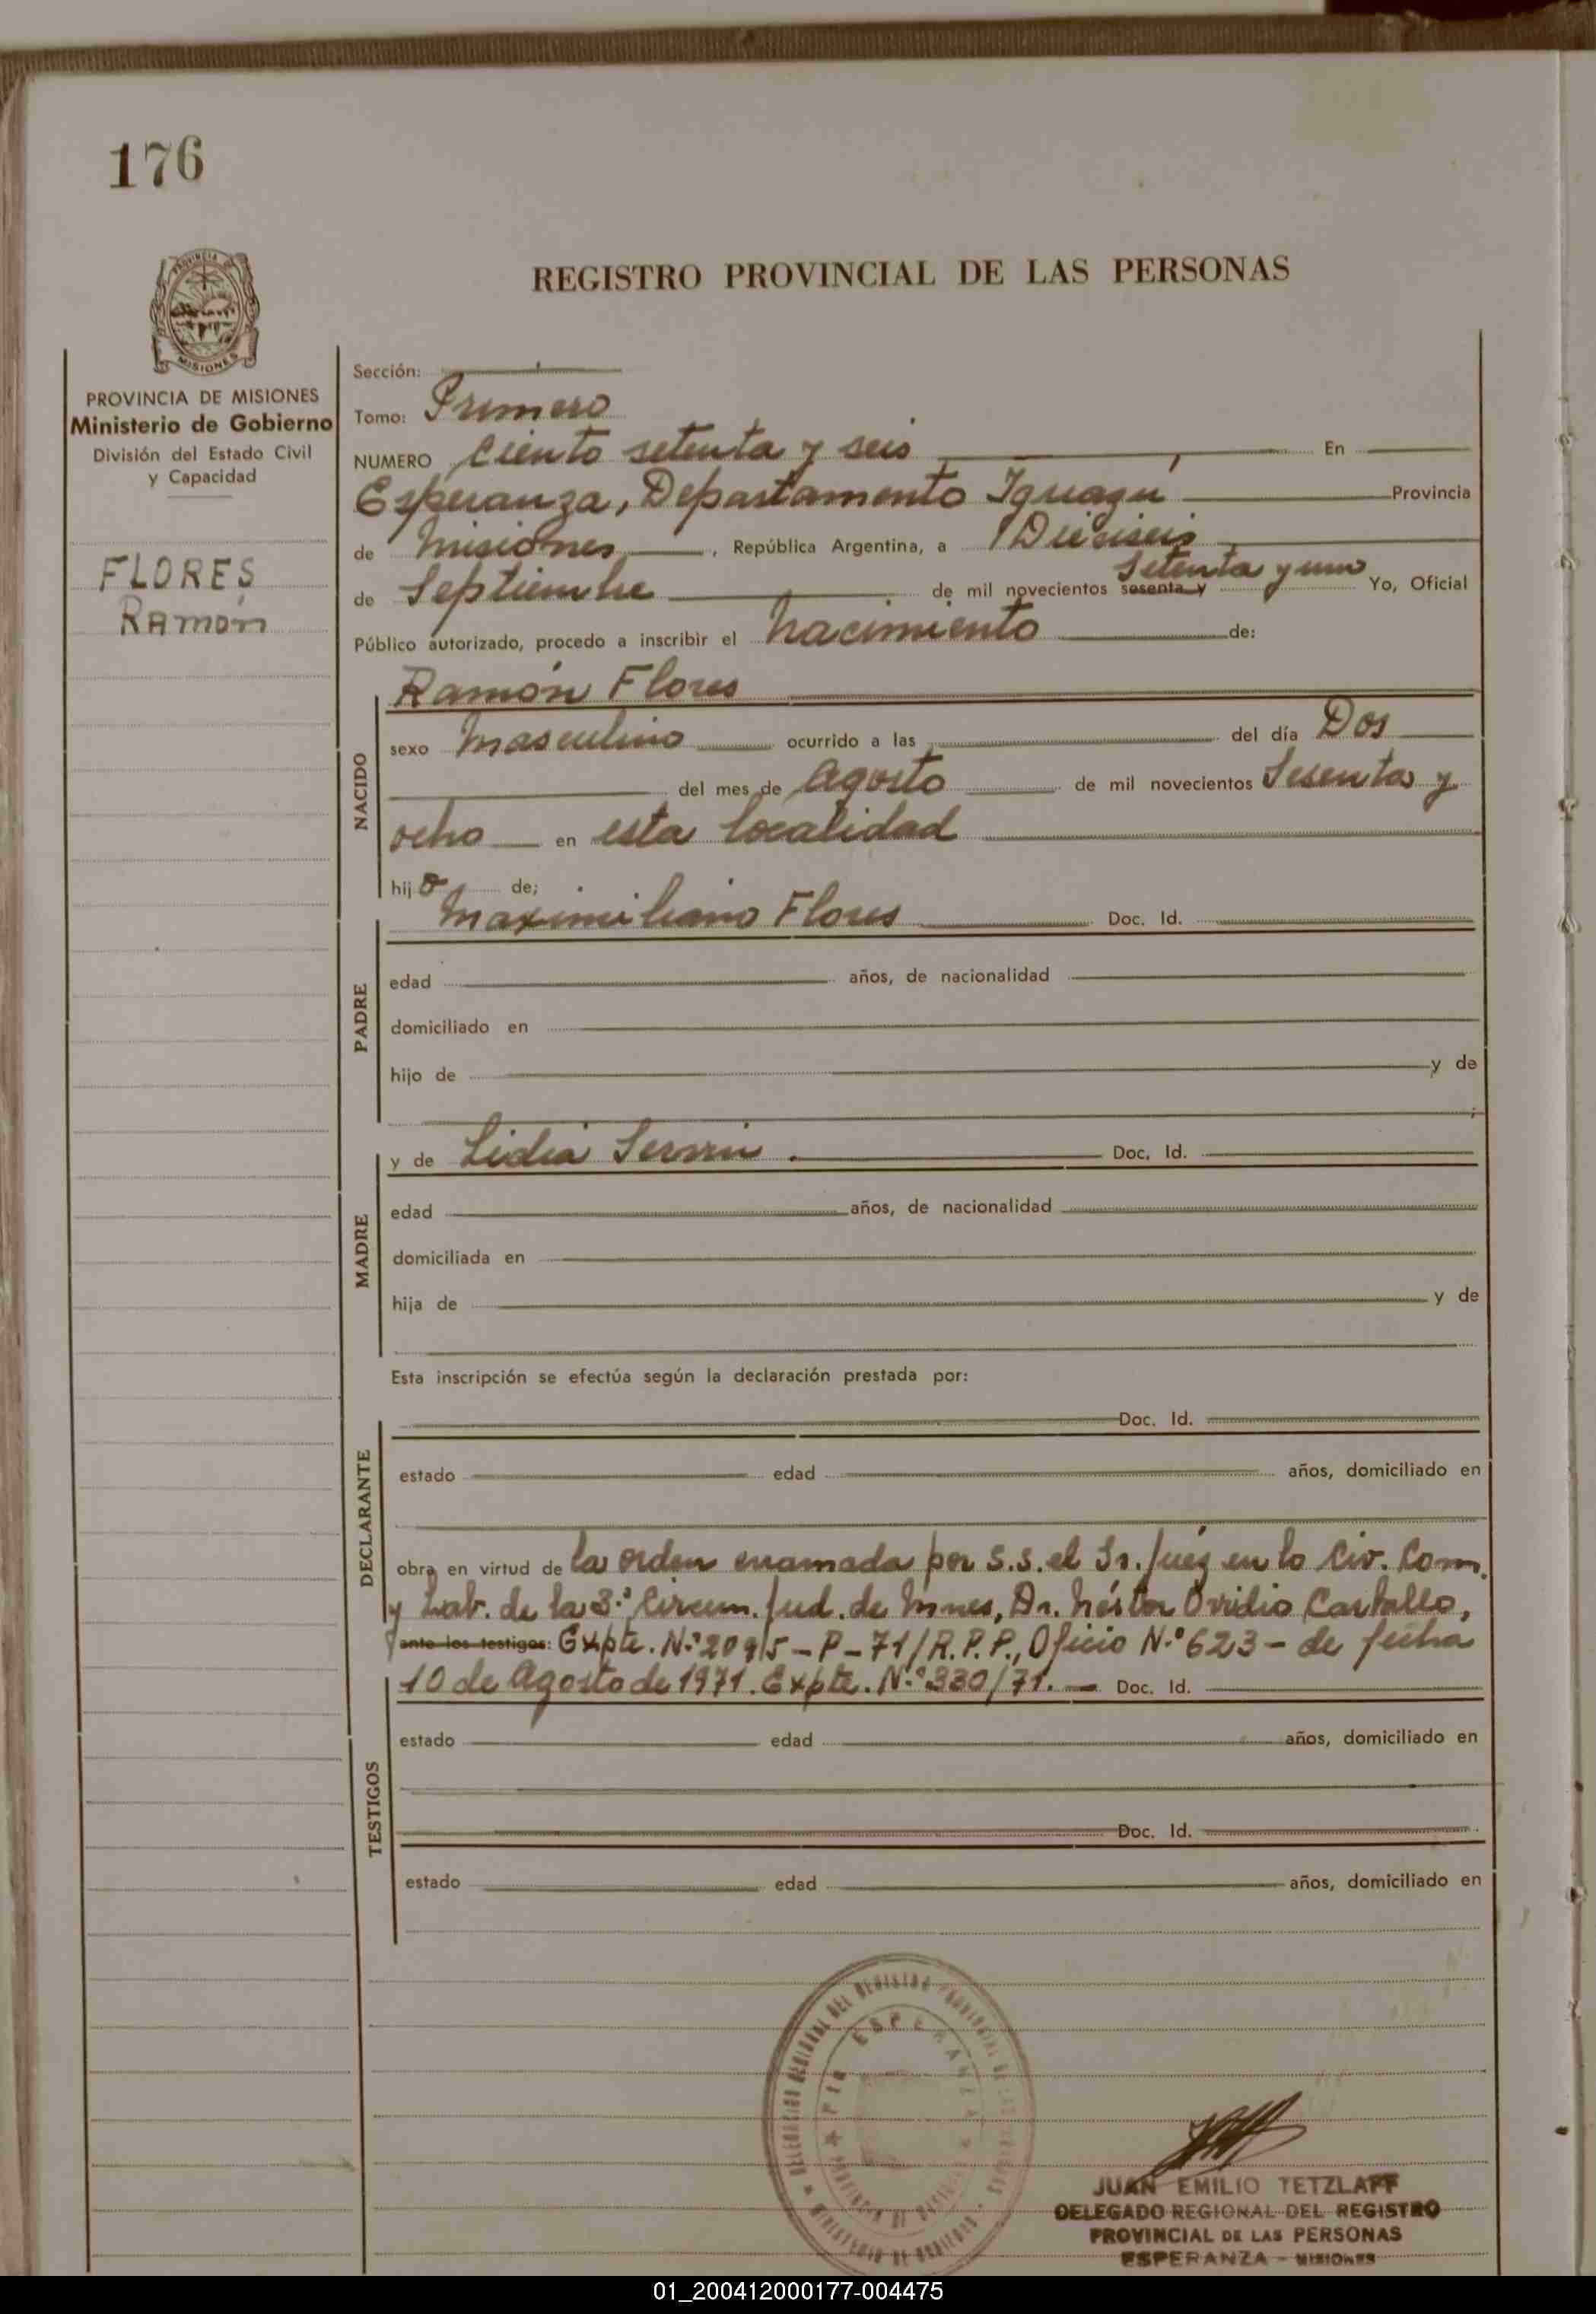 176
REGISTRO PROVINCIAL DE LAS PERSONAS
PROVINCIA DE MISIONES
Ministerio de Gobierno
División del Estado Civil
y Capacidad
FLORES
Ramón
Sección:
Tomo: Primero
NUMERO Ciento setenta y seis En
Esperanza, Departamento Iguazú Provincia
de Misiones, República Argentina, a Dieciseis
de Septiembre de mil novecientos sesenta y Setenta y uno Yo, Oficial
Público autorizado, procedo a inscribir el nacimiento de:
Ramón Flores
NACIDO
sexo Masculino ocurrido a las del día Dos
del mes de Agosto de mil novecientos Sesenta y
ocho en esta localidad
hijo de;
PADRE
Maximiliano Flores Doc. Id.
edad años, de nacionalidad
domiciliado en
hijo de y de
MADRE
y de Lidia Doc. Id.
edad años, de nacionalidad
domiciliada en
hija de y de
Esta inscripción se efectúa según la declaración prestada por:
DECLARANTE
Doc. Id.
estado edad años, domiciliado en
obra en virtud de la orden enamada por S.S. el Sr. Juez en lo Civ. Com.
y Lab. de la 3ª Circun. Jud. de Mnes, Dr. Néstor Ovidio Carballo,
ante los testigos: Expte. N.º 2095-P-71/R.P.P., Oficio N.º 623- de fecha
10 de Agosto de 1971. Expte. N.º 330/71. Doc. Id.
TESTIGOS
estado edad años, domiciliado en
Doc. Id.
estado edad años, domiciliado en
DELEGACION REGIONAL DEL REGISTRO PROVINCIAL DE LAS PERSONAS
MINISTERIO DE GOBIERNO
PTO ESPERANZA
PROVINCIA DE MISIONES
JUAN EMILIO TETZLAFF
DELEGADO REGIONAL DEL REGISTRO
PROVINCIAL DE LAS PERSONAS
ESPERANZA - MISIONES
01_200412000177-004475